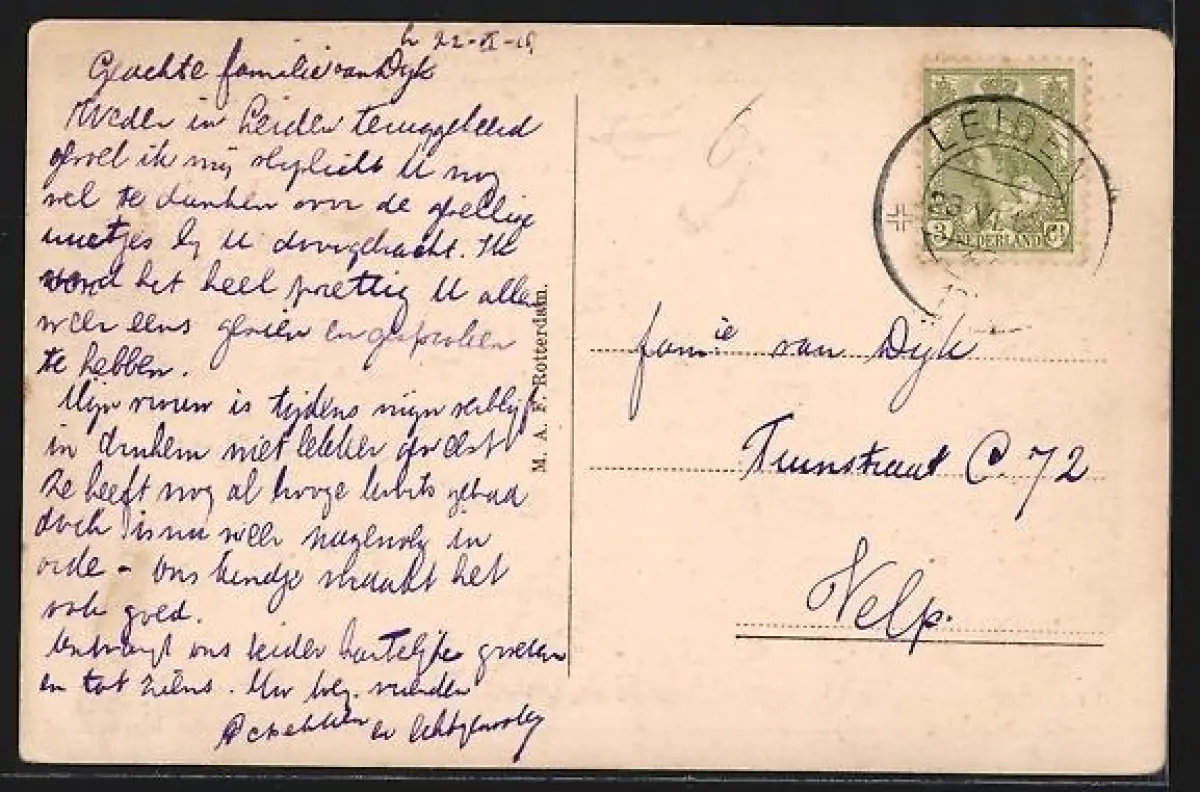 22-VI-
Geachte familie van Dijk
Weder in Leiden teruggekeerd
gevoel ik mij verplicht U nog
wel te danken voor de gezellige
uurtjes bij U doorgebracht. Ik
vond het heel prettig U allen
weer eens gezien en gesproken
te hebben.
Mijn vrouw is tijdens mijn verblijf
in Arnhem niet lekker geweest
Ze heeft nog al hooge koorts gehad
doch is nu weer nagenoeg in
orde - Ons kindje maakt het
ook goed.
Ontvangt ons beider hartelijke groeten
en tot ziens. Uw vrienden
en Echtgenoote
M. A. F. Rotterdam.
LEIDEN
VI
3 NEDERLAND Ct
famie van Dijk
Tuinstraat C 72
Velp.